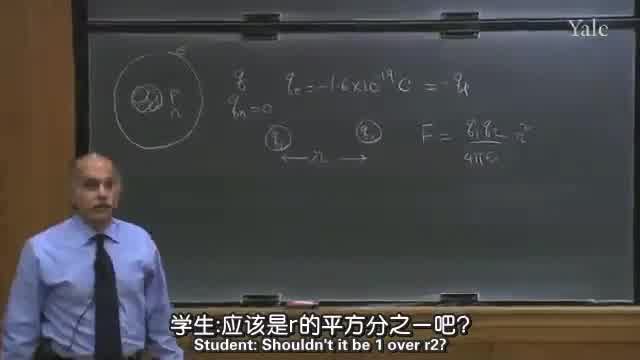 Yale
e
q q_e = -1.6 × 10^-19 C = -q_p
P
n
q_n = 0
q_1 q_2
r
F = q_1 q_2 / 4πε_0 r^2
学生:应该是r的平方分之一吧?
Student: Shouldn't it be 1 over r2?